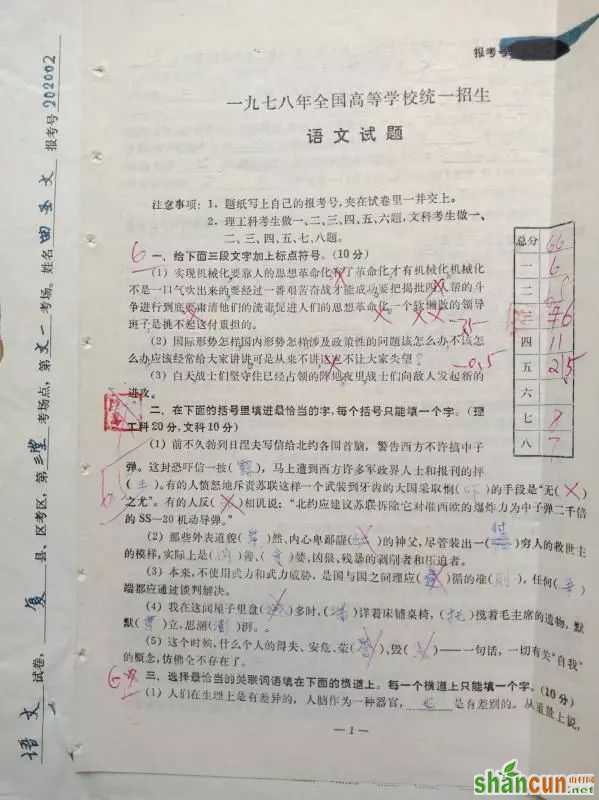 报考号
一九七八年全国高等学校统一招生
语文试题
注意事项：1．题纸写上自己的报考号，夹在试卷里一并交上。
2．理工科考生做一、二、三、四、五、六题，文科考生做一、
二、三、四、五、七、八题。
6
一、给下面三段文字加上标点符号。（10分）
（1）实现机械化要靠人的思想革命化有了革命化才有机械化机械化
不是一口气吹出来的要经过一番艰苦奋战才能成功要把揭批四人帮的斗
争进行到底要肃清他们的流毒促进人们的思想革命化一个软懒散的领导
班子是挑不起这付重担的
（2）国际形势怎样国内形势怎样涉及政策性的问题该怎么办不该怎
么办应该经常给大家讲讲可是从来不讲这也不让大家失望
-0.5
（3）白天战士们坚守住已经占领的阵地夜里战士们向敌人发起新的
进攻
二、在下面的括号里填进最恰当的字，每个括号只能填一个字。（理
工科20分，文科10分）
（1）前不久勃列日涅夫写信给北约各国首脑，警告西方不许搞中子
弹。这封恐吓信一披（ ），马上遭到西方许多军政界人士和报刊的抨
（ ）。有的人愤怒地斥责苏联这样一个武装到牙齿的大国采取恫（ ）的手段是“无（ ）
之尤”。有的人反（ ）相讥说：“北约应建议苏联拆除它对准西欧的爆炸力为中子弹二千倍
的SS—20机动导弹。”
（2）那些外表道貌（ ）然、内心卑鄙龌（ ）的神父，尽管装出一（ ）穷人的救世主
的模样，实际上是（ ）善、（ ）婪、凶狠、残暴的剥削者和压迫者。
（3）本来，不使用武力和武力威胁，是国与国之间理应（ ）循的准（则），任何（ ）
端都应通过谈判解决。
（4）我在这间屋子里盘（ ）多时，（ ）详着床铺桌椅，（ ）摸着毛主席的遗物，默
默（ ）立，思潮（澎）湃。
（5）这个时候，什么个人的得失、安危、荣（ ）、毁（ ）——一句话，一切有关“自我”
的概念，仿佛全不存在了。
三、选择最恰当的关联词语填在下面的横道上。每一个横道上只能填一个字。（10分）
（1）人们在生理上是有差异的，人脑作为一种器官，也是有差别的。从重量上说，
—1—
总分 66
一 6
二
四 11
五
六
七 8
八 7
语文试卷，复县、区考区，第三堂考场点，第文一考场。姓名 报考号 202002
shancun.net